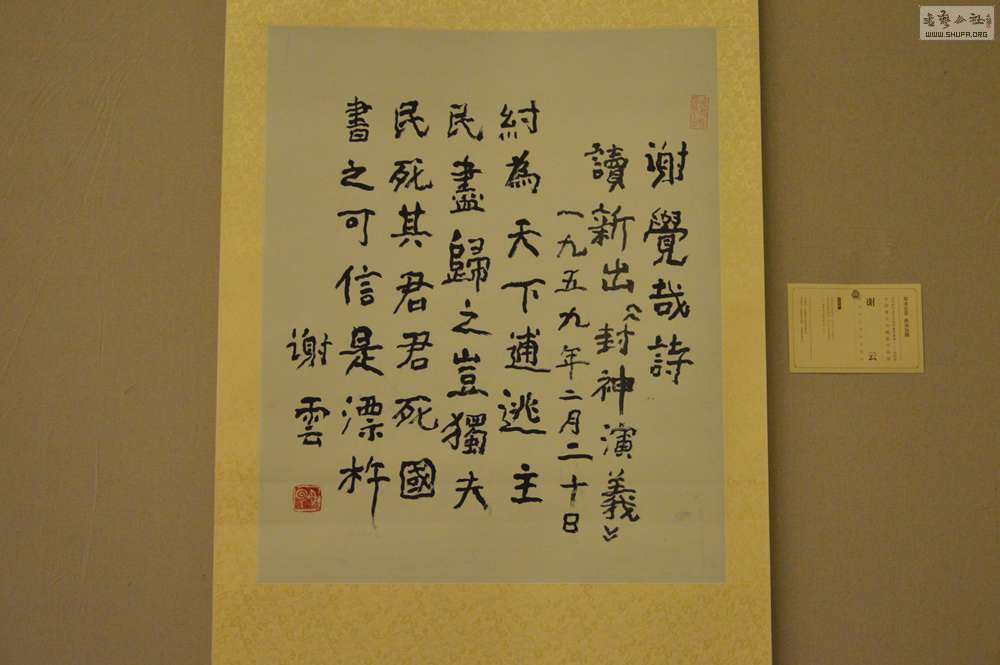 謝覺哉詩
讀新出《封神演義》
一九五九年二月二十日
紂為天下逋逃主
民盡歸之豈獨夫
民死其君君死國
書之可信是漂杵
謝雲
谢云
WWW.SHUFA.ORG